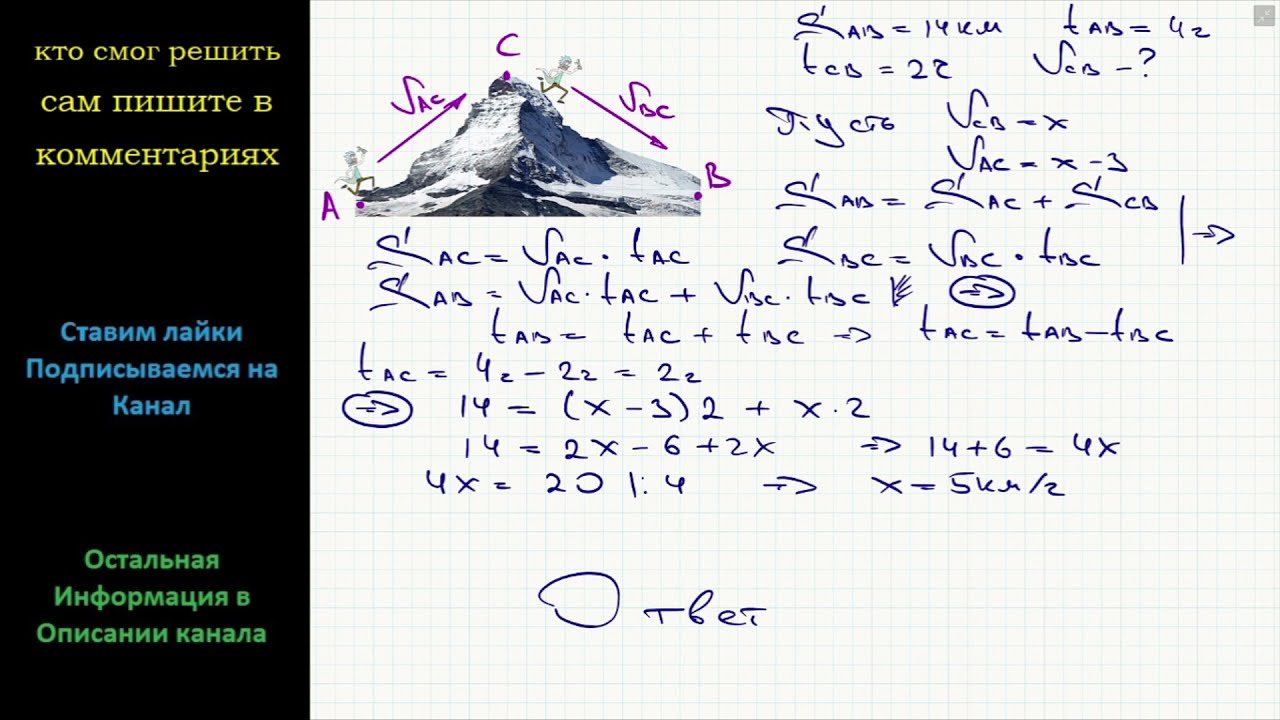 кто смог решить
сам пишите в
комментариях
Ставим лайки
Подписываемся на
Канал
Остальная
Информация в
Описании канала
S AB = 14 км t AB = 4 ч
t CB = 2 ч V CB - ?
C
V AC
V BC
A
B
Пусть V CB = x
V AC = x - 3
S AB = S AC + S CB | =>
S AC = V AC · t AC S BC = V BC · t BC
S AB = V AC · t AC + V BC · t BC =>
t AB = t AC + t BC => t AC = t AB - t BC
t AC = 4 ч - 2 ч = 2 ч
=> 14 = (x - 3) 2 + x · 2
14 = 2x - 6 + 2x => 14 + 6 = 4x
4x = 20 |: 4 => x = 5 км/ч
Ответ